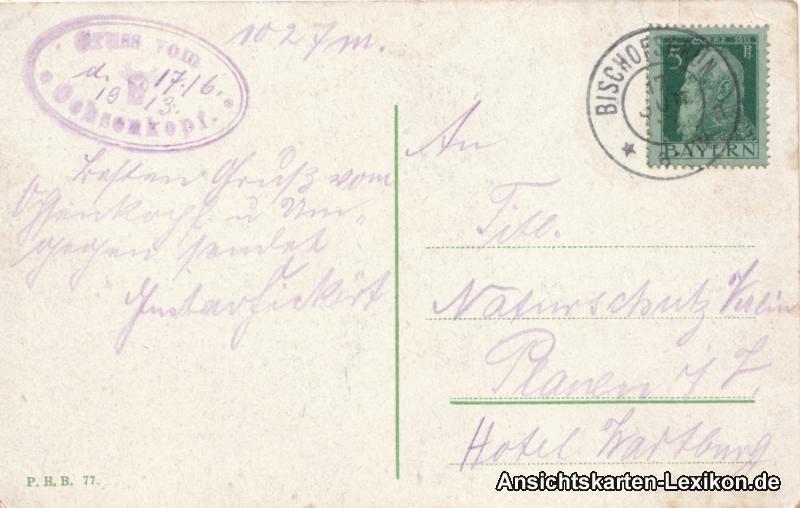 Gruss vom
d. 17.16.
1913.
Ochsenkopf.
1027 m.
Besten Gruß vom
Ochsenkopf u Um-
gegen sendet
Gustav Fickert
P. H. B. 77.
BISCHOF
5 Pf
BAYERN
An
Titl.
Naturschutz Verein
Plauen i/V.
Hotel Wartburg
Ansichtskarten-Lexikon.de